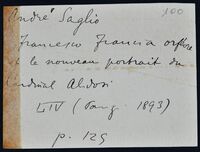 André Saglio
100
Francesco Francia orfèvre
et le nouveau portrait du
cardinal Alidosi
LIV (Janv. 1893)
p. 125